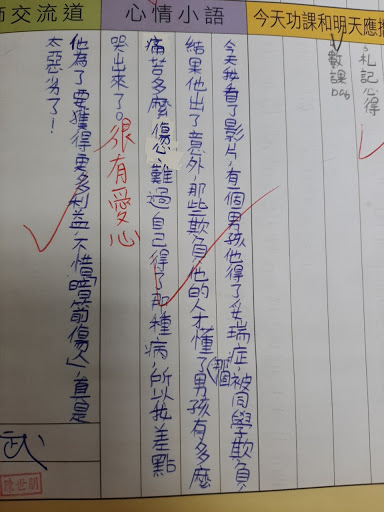 師交流道
心情小語
今天功課和明天應
札記心得
數課
今天我看了影片，有個男孩他得了妥瑞症，被同學欺負，
結果他出了意外，那些欺負他的人才懂了那個男孩有多麼
痛苦多麼傷心、難過自己得了那種病，所以我差點
哭出來了。
很有愛心
他為了要獲得更多利益，不惜「暗箭傷人」，真是
太惡劣了！